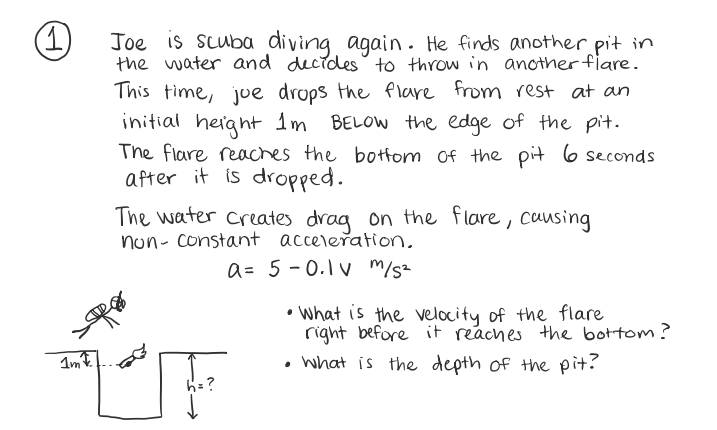 1 Joe is scuba diving again. He finds another pit in
the water and decides to throw in another flare.
This time, joe drops the flare from rest at an
initial height 1m BELOW the edge of the pit.
The flare reaches the bottom of the pit 6 seconds
after it is dropped.
The water creates drag on the flare, causing
non-constant acceleration.
a = 5 - 0.1v m/s²
• What is the velocity of the flare
right before it reaches the bottom?
• What is the depth of the pit?
1m
h=?